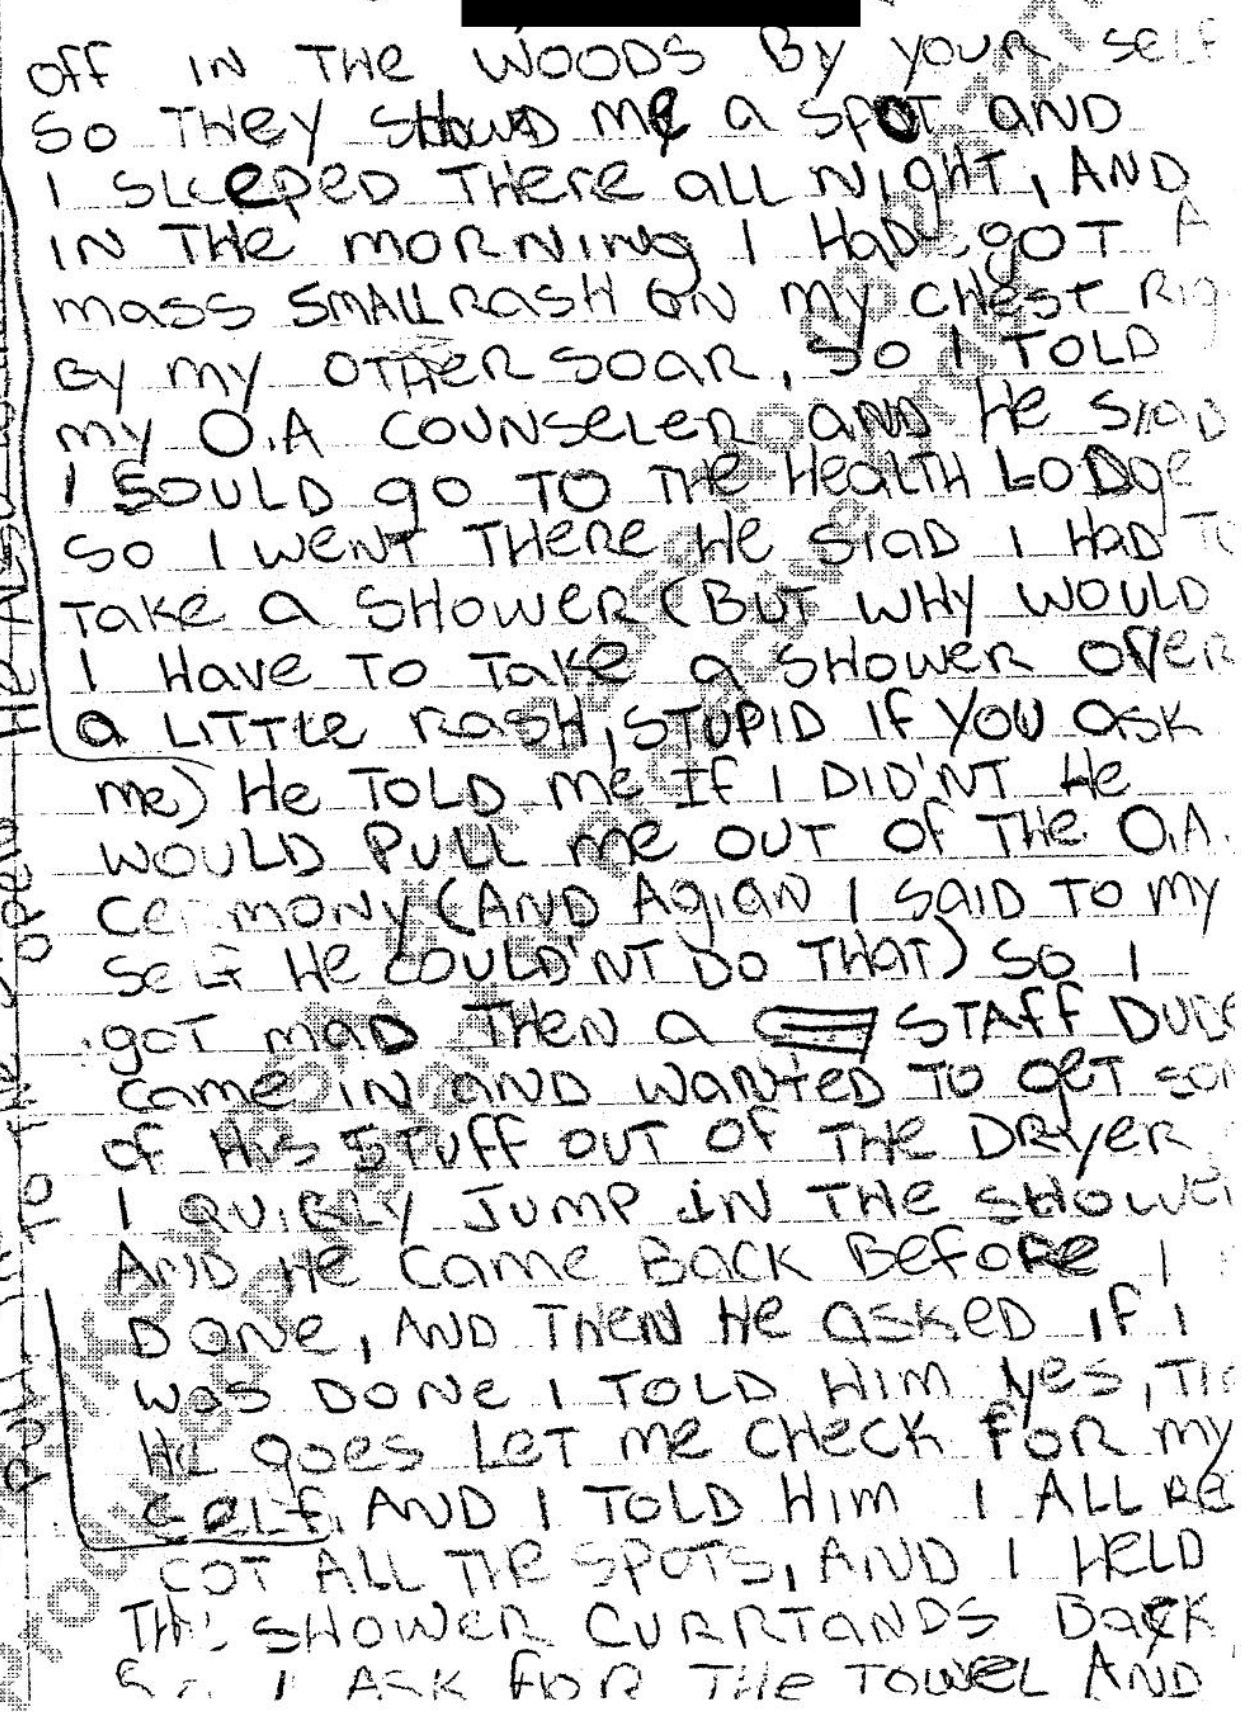 off IN THE WOODS By YOUR Self
So THEY SHOWD me a SPOT AND
I SLEEPED THERE ALL NIGHT, AND
IN THE MORNING I HAD GOT A
mass SMALL RASH ON my CHEST
By my OTHER SOAR, SO I TOLD
my O.A COUNSELER AND He SIAD
I SOULD go TO THE HEALTH LODge
SO I WENT THERE He SIAD I HAD TO
TAKE a SHOWER (BUT WHY WOULD
I HAVE TO TAKE a SHOWER OVER
a LITTLE RASH, STUPID IF YOU ASK
me) He TOLD me IF I DID'NT He
WOULD PULL me OUT OF THE O.A.
CERMONY (AND AGIAN I SAID TO MY
SELF He COULD'NT DO THAT) SO I
goT MAD THEN a STAFF DUDE
came IN AND WANTED TO geT
of HIS STUFF OUT OF THE DRYER
I QUICKLY JUMP IN THE SHOWER
AND HE came BACK BEFORE I
DONE, AND THEN He ASKED IF I
WAS DONE I TOLD HIM YES,
He goes LET me CHECK FOR MY
SELF, AND I TOLD HIM I ALL RE
GOT ALL THE SPOTS, AND I HELD
THE SHOWER CURRTANDS BACK
I ASK FOR THE TOWEL AND
HE ALSO
TO THE